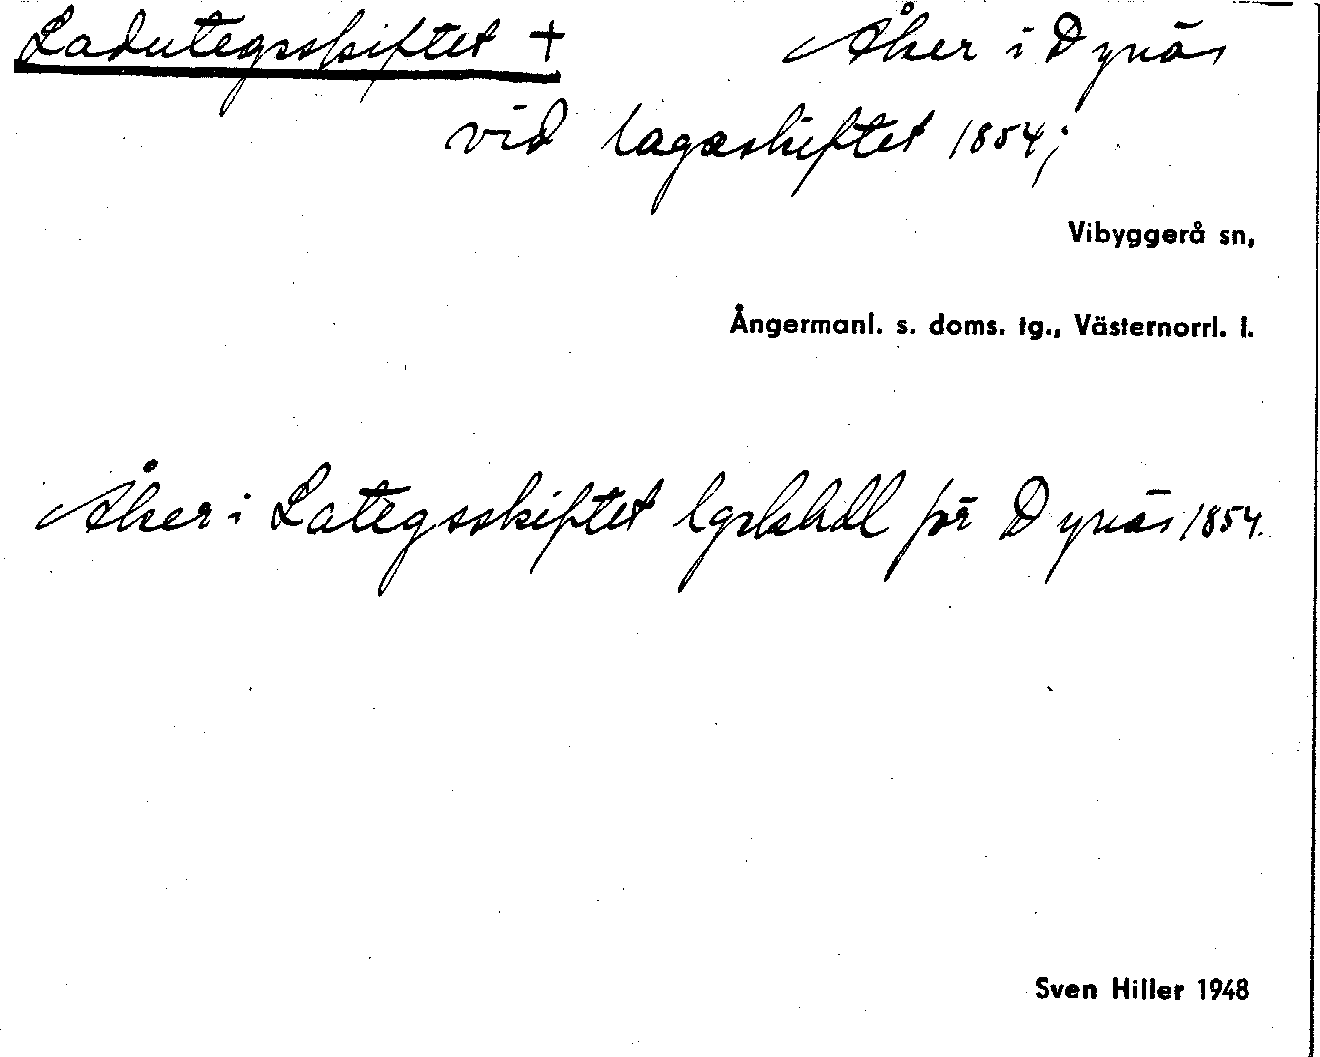 Ladutegsskiftet + Åker i Dynäs
vid lagaskiftet 1854;
Vibyggerå sn,
Ångermanl. s. doms. tg., Västernorrl. l.
Åker i Lategsskiftet lgskhdl för Dynäs 1854.
Sven Hiller 1948